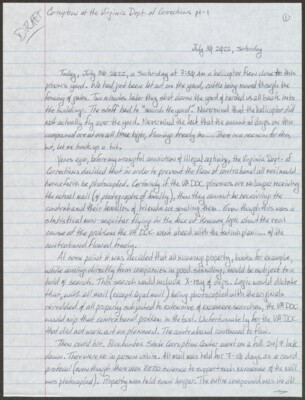 DRAFT
Corruption at the Virginia Dept. of Corrections pt-1
①
July 30, 2022, Saturday
Today, July 30 2022, a Saturday at 7:30 AM a helicopter flew close to this
prison's yard. We had just been let out on the yard, cattle being moved through the
farming of gates. Two minutes later they shut down the yard & corralled us all back into
the buildings. The staff had to "search the yard". Nevermind that the helicopter did
not actually fly over the yard. Nevermind the fact that the amount of drugs on this
compound are at an all time high, flowing freely
but, let me back up a bit.
Years ago, before my wrongful conviction of illegal captivity, the Virginia Dept. of
Corrections decided that in order to prevent the flow of contraband all mail would
henceforth be photocopied. Certainly if the VA DOC prisoners are no longer receiving
the actual mail (of photographs of family), then they cannot be receiving the
contraband their families & friends are sending them. Even though this was a
statistical non-sequitur flying in the face of known logic about the real
cause of the problems the VA DOC went ahead with the
the contraband flowed freely.
At some point it was decided that all incoming property, books for example,
while coming directly from companies in good standing, would be subject to a
build of search. This search would include X-ray & dogs. Logic would dictate
that, with all mail (except legal mail) being photocopied with these
of all property subjected to extensive & excessive searches, the VA DOC
would say that contraband problem in the bud. Unfortunately for the VA DOC
that did not work out as planned. The contraband continued to flow.
Then covid hit. Buckingham State Correction Center went on a full 24/7 lock
down. There were no in person visits. All mail was held for 7-10 days as a covid
protocol (even though there was ZERO science to support such nonsense of the mail
was photocopied). Property was held even longer. The entire compound was in all